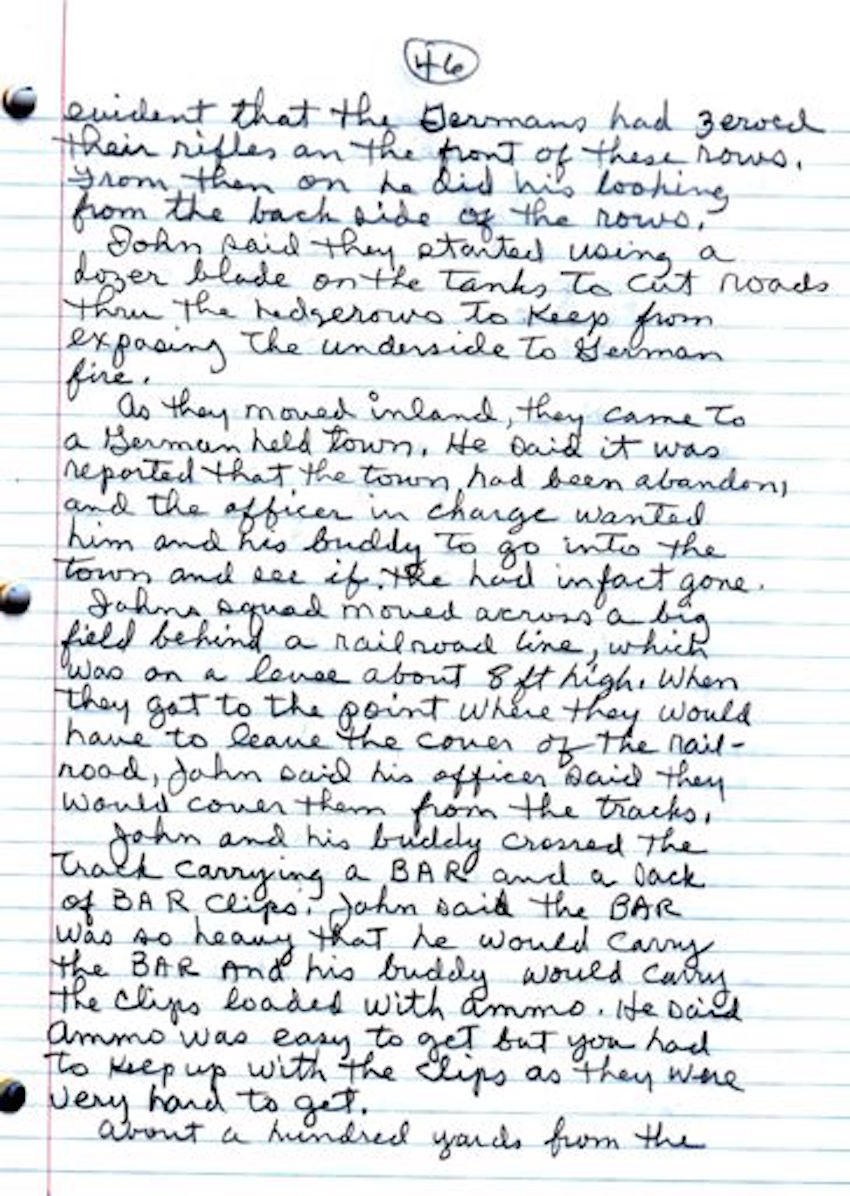 46
evident that the Germans had zeroed
their rifles on the front of these rows.
From then on he did his looking
from the back side of the rows.
John said they started using a
dozer blade on the tanks to cut roads
thru the hedgerows to keep from
exposing the underside to German
fire.
As they moved inland, they came to
a German held town. He said it was
reported that the town had been abandon,
and the officer in charge wanted
him and his buddy to go into the
town and see if the had infact gone.
Johns squad moved across a big
field behind a railroad line, which
was on a levee about 8 ft high. When
they got to the point where they would
have to leave the cover of the rail-
road, John said his officer said they
would cover them from the tracks.
John and his buddy crossed the
track carrying a BAR and a sack
of BAR clips. John said the BAR
was so heavy that he would carry
the BAR and his buddy would carry
the clips loaded with ammo. He said
ammo was easy to get but you had
to keep up with the clips as they were
very hard to get.
About a hundred yards from the